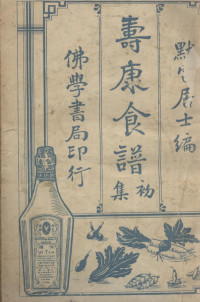 默之居士編
壽康食譜
初集
佛學書局印行